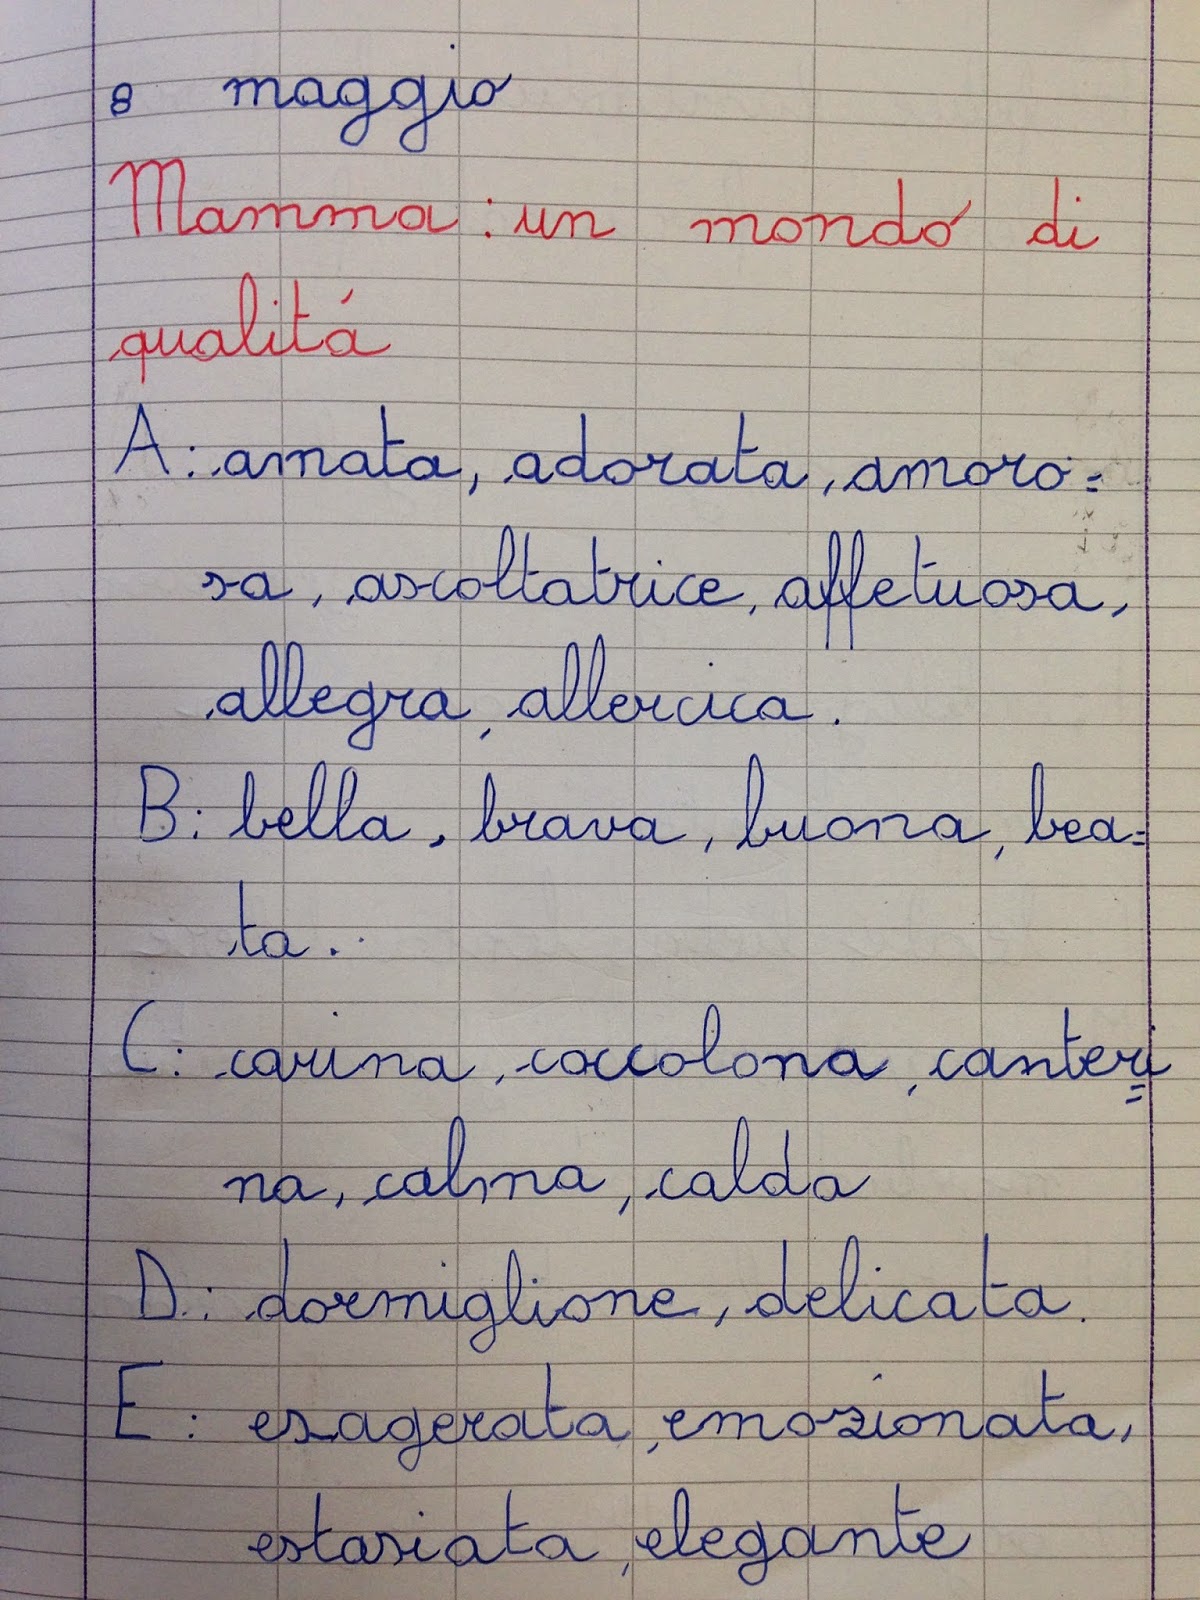 8 maggio
Mamma: un mondo di
qualitá
A: amata, adorata, amoro=
sa, ascoltatrice, affetuosa,
allegra, allercica.
B: bella, brava, buona, bea=
ta.
C: carina, coccolona, canteri=
na, calma, calda
D: dormiglione, delicata.
E: esagerata, emozionata,
estasiata, elegante